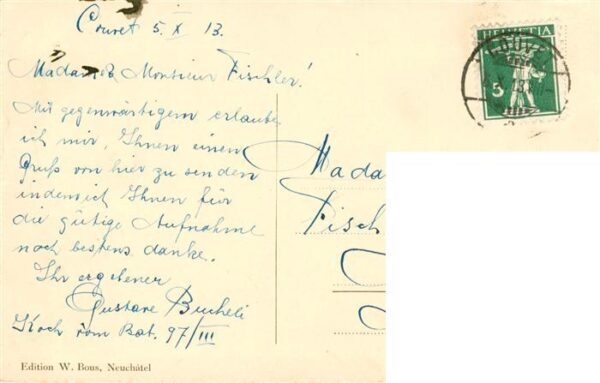 Couvet 5. X 13.
Madame & Monsieur Fischler!
Mit gegenwärtigem erlaube
ich mir, Ihnen einen
Gruß von hier zu senden
indem ich Ihnen für
die gütige Aufnahme
noch bestens danke.
Ihr ergebener
Gustave Bucheli
Koch vom Bat. 97/III
Edition W. Bous, Neuchâtel
HELVETIA
5
COUVET
Mada
Fisch